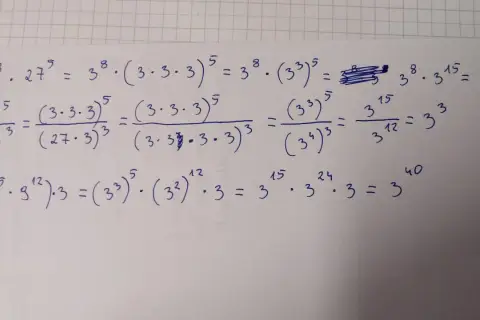 · 27⁵ = 3⁸ · (3 · 3 · 3)⁵ = 3⁸ · (3³)⁵ = 3⁸ · 3¹⁵ =
= (3 · 3 · 3)⁵ / (27 · 3)³ = (3 · 3 · 3)⁵ / (3 · 3 · 3 · 3)³ = (3³)⁵ / (3⁴)³ = 3¹⁵ / 3¹² = 3³
· 9¹²) · 3 = (3³)⁵ · (3²)¹² · 3 = 3¹⁵ · 3²⁴ · 3 = 3⁴⁰